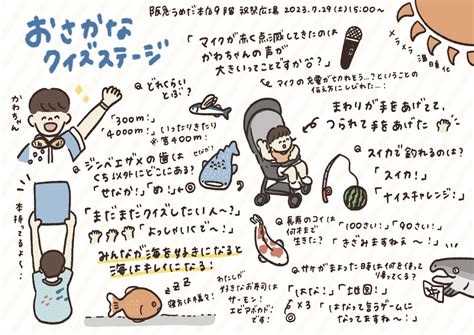 阪急うめだ本店9階 祝祭広場 2023.7.29(土)15:00〜
おさかな
クイズステージ
「マイクが赤く点滅してきたのは
かわちゃんの声が
大きいってことですか?」
マイクの充電が切れそう…?ということの
伝え方にしびれた…!
メラメラ 温暖化
かわちゃん
Q どれくらい
とぶ?
「300m!」
「4000m!」
いったりきたり
※答400m!
まわりが手をあげてて、
つられて手をあげた
Q ジンベエザメの歯は
くち以外にどこにある?
せなか!
「せなか!」「め!」
Q スイカで釣れるのは?
「スイカ!」
「ナイスチャレンジ!」
「まだまだクイズしたい人〜?」
「よっしゃいくで〜!」
本持ってるよ〜
みんなが海を好きになると
海はキレイになる!
Q 長寿のコイは
何才まで
生きた?
「100さい!」「90さい!」
「きざみますねぇ〜!」
Q サケがまよった時は何を使って
帰ってくる?
「はな!」「地図!」
×3
「はなって言うゲームに
なってますね〜!」
zzZ
彼方は今昼寝?
わたしが
好きなお寿司は
サーモン!
エビアボカド!
です!